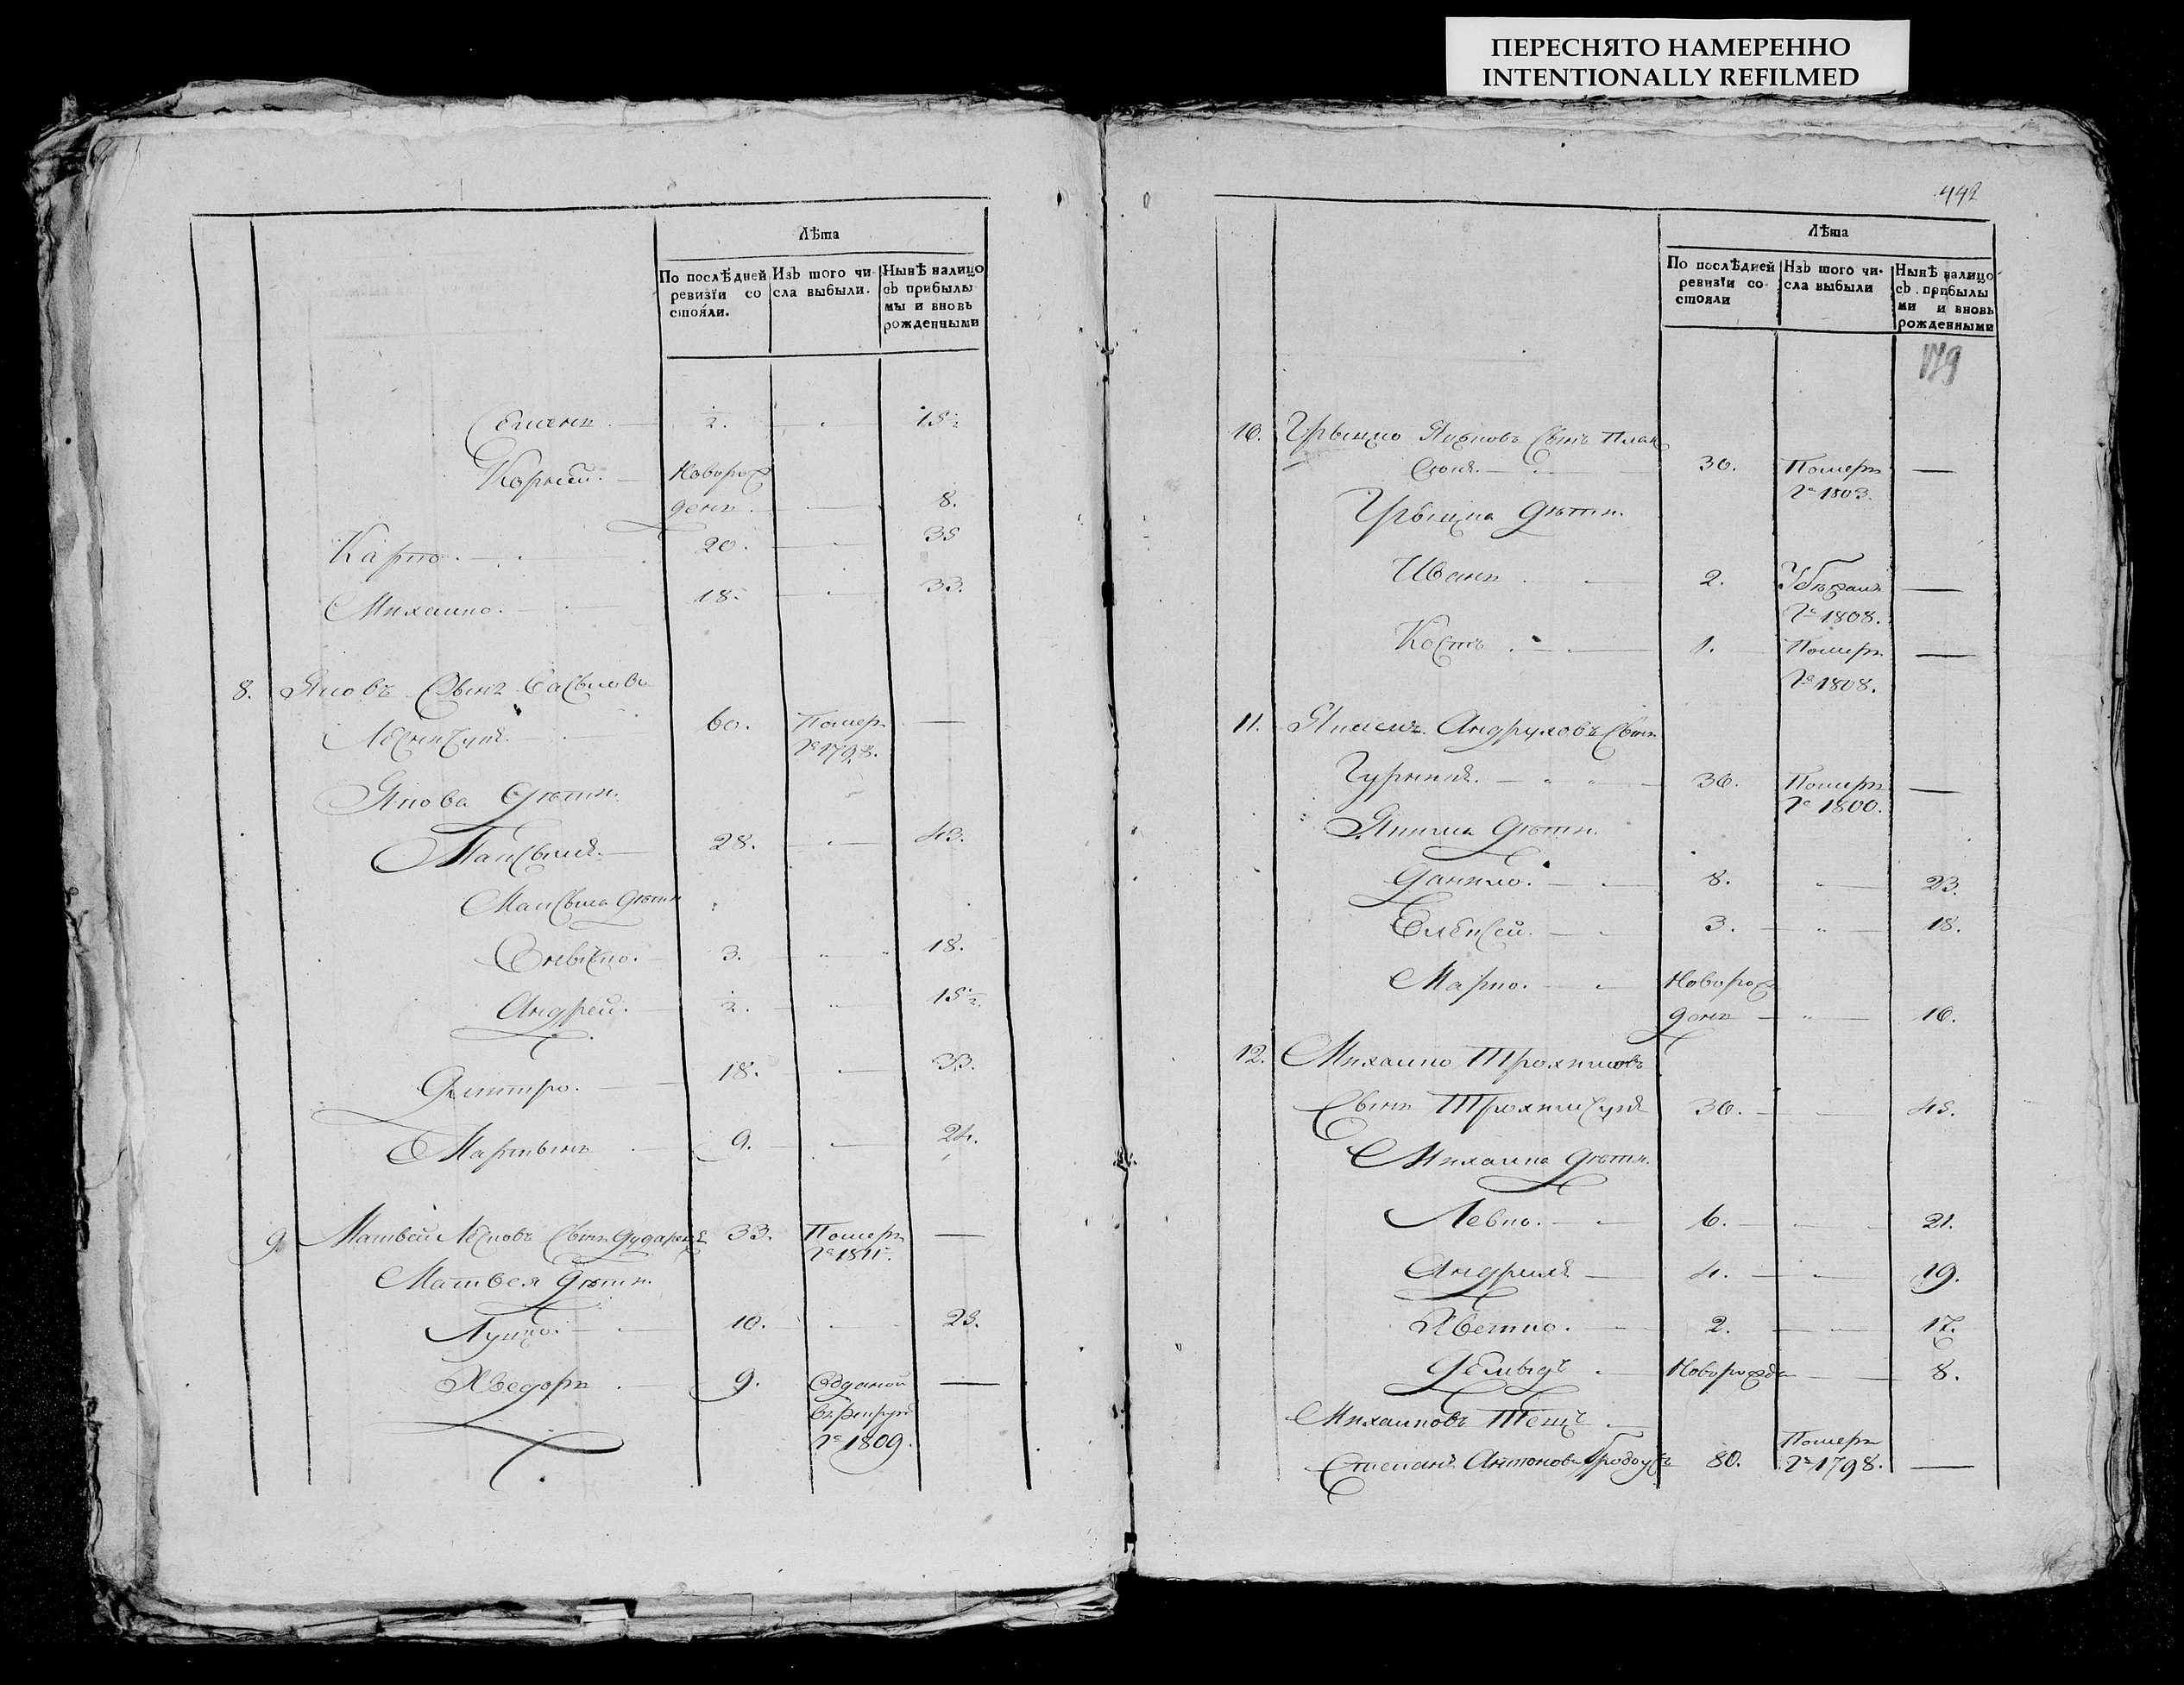 ПЕРЕСНЯТО НАМЕРЕННО
INTENTIONALLY REFILMED
Лѣта
По послѣдней ревизїи состояли.
Изъ того числа выбыли.
Нынѣ налицо съ прибылыми и вновь рожденными
Семенъ 2. 15½
Корнѣй. Новорож
денъ 8.
Карпо. 20. 35
Михайло. 18. 33.
8. Яковъ Сынъ
60. Померъ
1798.
Якова Дѣти.
Максымъ. 28. 43.
Максыма Дѣти
3. 18.
Андрей. 2. 15½.
Дмитро. 18. 33.
Мартынъ 9. 24.
9. Матвей Сынъ 33. Померъ —
1811.
Матвея Дѣти.
Луцко. 10. 25.
Хведоръ 9. Отданой —
в рекруты
1809.
442
Лѣта
По послѣдней ревизїи состояли
Изъ того числа выбыли
Нынѣ налицо съ прибылыми и вновь рожденными
10. Грыцко Сынъ
30. Померъ —
1803.
Грыцка Дѣти.
Иванъ 2. Убѣжалъ —
1808.
Кость 1. Померъ —
1808.
11. Якимъ Андруховъ Сынъ
36. Померъ —
1800.
Якима Дѣти.
Данило. 8. 23.
Елексей. 3. 18.
Марко. Новорож
денъ 16.
12. Михайло Трохимовъ
Сынъ 30. 45.
Михайла Дѣти.
Левко. 6. 21.
4. 19.
2. 17.
Демыдъ Новорожде 8.
Михайловъ Тещъ
Степанъ Антоновъ 80. Померъ
1798. —